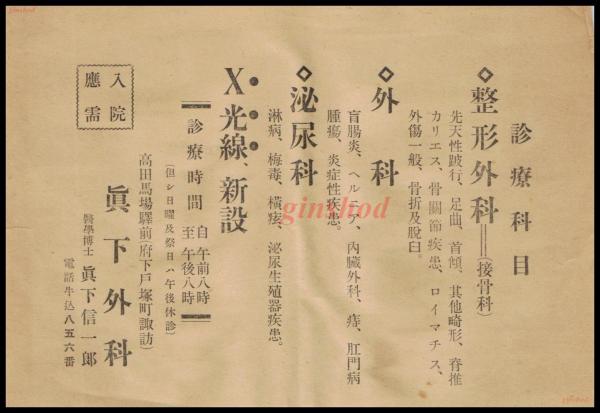 診療科目
◇整形外科══(接骨科)
先天性跛行、足曲、首傾、其他畸形、脊推
カリエス、骨關節疾患、ロイマチス、
外傷一般、骨折及脫臼。
◇外科
盲腸炎、ヘルニア、內臟外科、痔、肛門病
腫瘍、炎症性疾患。
◇泌尿科
淋病、梅毒、橫痃、泌尿生殖器疾患。
X光線、新設
診療時間 自午前八時 至午後八時
(但シ日曜及祭日ハ午後休診)
入院應需
高田馬場驛前府下戶塚町諏訪
眞下外科
醫學博士 眞下信一郎
電話牛込八五六番
ginshod
ginshod
ginshod